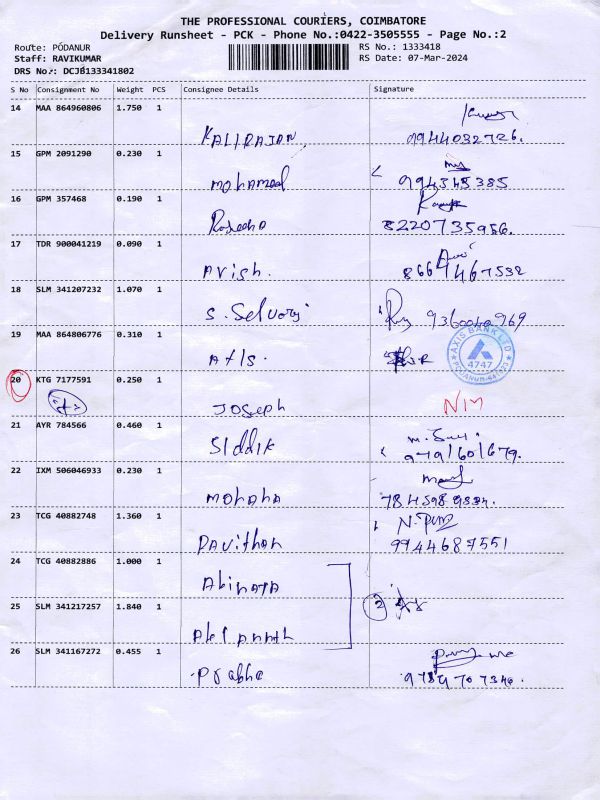 THE PROFESSIONAL COURIERS, COIMBATORE
Delivery Runsheet - PCK - Phone No.:0422-3505555 - Page No.:2
Route: PODANUR RS No.: 1333418
Staff: RAVIKUMAR RS Date: 07-Mar-2024
DRS No.: DCJB133341802
S No Consignment No Weight PCS Consignee Details Signature
14 MAA 864960806 1.750 1
KALIRAJAN 9944032726.
15 GPM 2091290 0.230 1
Mohamed 994345385
16 GPM 357468 0.190 1
8220735956.
17 TDR 900041219 0.090 1
Avish. 8667467532
18 SLM 341207232 1.070 1
S. Selvaraj 9360040969
19 MAA 864806776 0.310 1
AXIS BANK LTD
4747
20 KTG 7177591 0.250 1
JOSEPH
21 AYR 784566 0.460 1
SIDDIK 9791601679.
22 IXM 506046933 0.230 1
Mohana
23 TCG 40882748 1.360 1
Pavithan 9944687551
24 TCG 40882886 1.000 1
25 SLM 341217257 1.840 1
2
26 SLM 341167272 0.455 1
Prabha